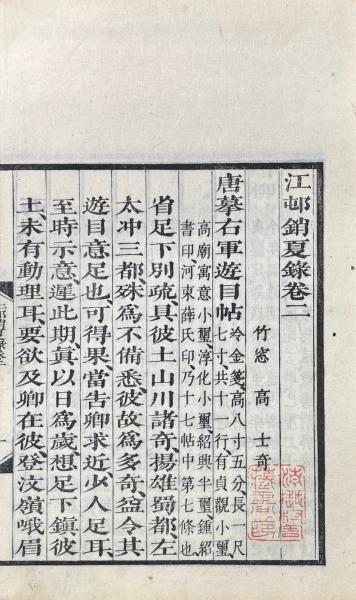 江邨銷夏錄卷二
竹窓 高士奇
唐摹右軍遊目帖
冷金箋、高八寸五分、長一尺
七寸、共十一行、有貞觀小璽、
高廟寓意小璽、淳化小璽、紹興半璽、鍾紹
書印、河東薛氏印、乃十七帖中第七條也、
省足下別疏、具彼土山川諸奇、揚雄蜀都、左
太冲三都、殊為不備悉、彼故為多奇、益令其
遊目意足也、可得果、當告卿求迎、少人足耳、
至時示意、遲此期、真以日為歲、想足下鎮彼
土、未有動理耳、要欲及卿在彼、登汶嶺峨眉